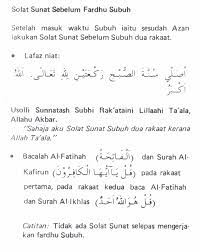 Solat Sunat Sebelum Fardhu Subuh
Setelah masuk waktu Subuh iaitu sesudah Azan
lakukan Solat Sunat Sebelum Subuh dua rakaat.
• Lafaz niat:
أُصَلِّي سُنَّةَ الصُّبْحِ رَكْعَتَيْنِ لِلَّهِ تَعَالَى. اَللهُ
اَكْبَرُ
Usolli Sunnatash Subhi Rak'ataini Lillaahi Ta'ala,
Allahu Akbar.
"Sahaja aku Solat Sunat Subuh dua rakaat kerana
Allah Ta'ala."
• Bacalah Al-Fatihah (اَلْفَاتِحَةُ) dan Surah Al-
Kafirun (قُلْ يَاأَيُّهَا الْكَافِرُوْنَ) pada rakaat
pertama, pada rakaat kedua baca Al-Fatihah
dan Surah Al-Ikhlas (قُلْ هُوَ اللهُ أَحَدٌ)
Catitan: Tidak ada Solat Sunat selepas mengerja-
kan fardhu Subuh.